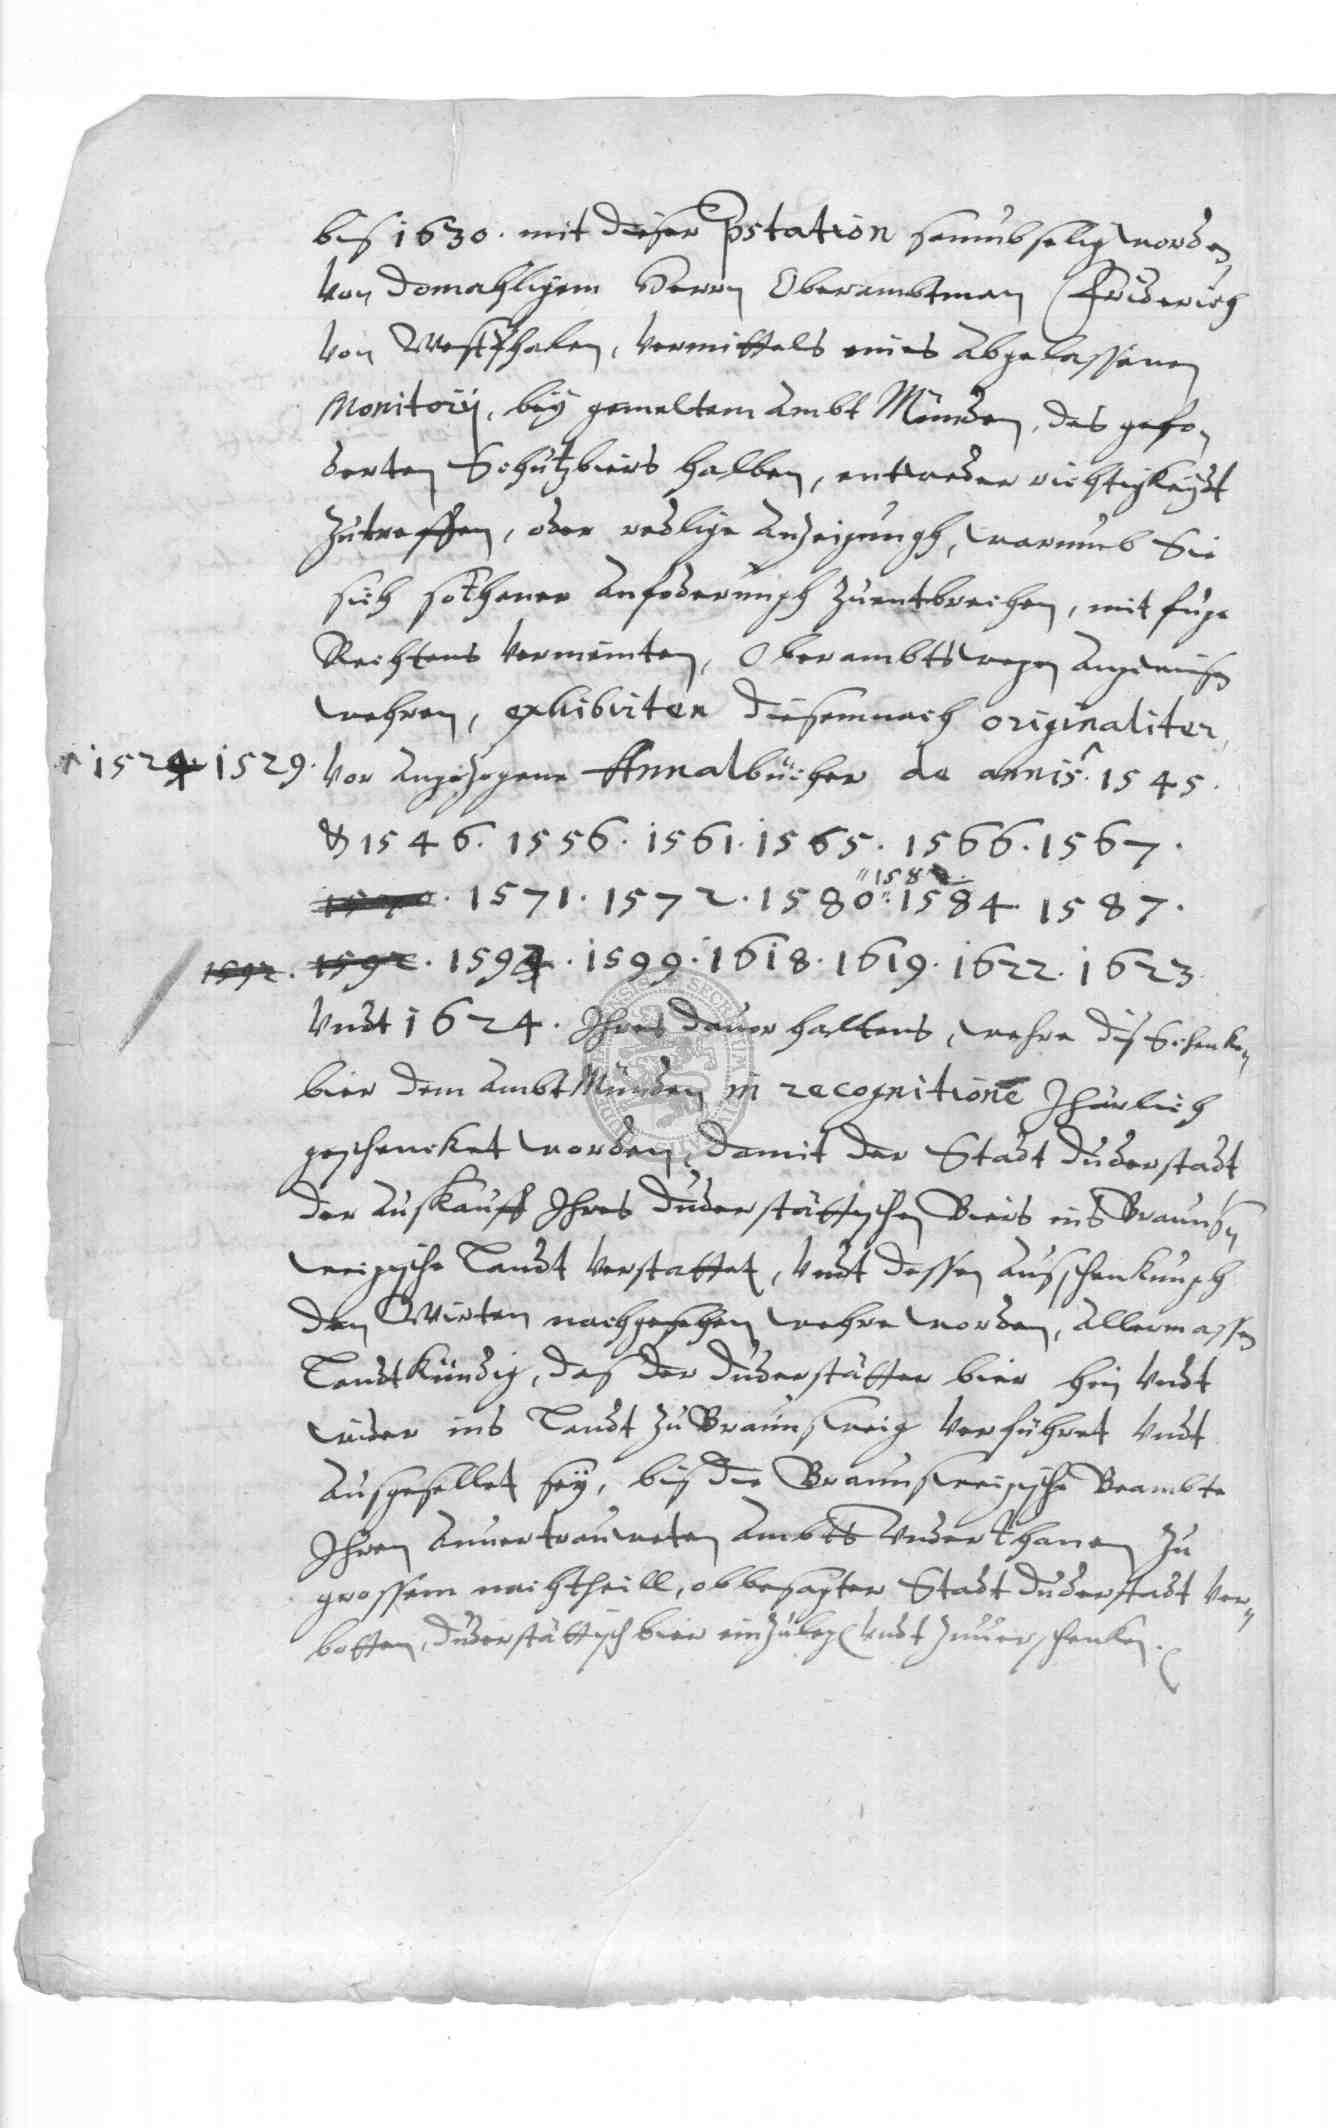 bis 1630. mit dieser pstation saumbselig worden
von domahligem Herrn Oberambtman Friderich
von Westphalen, vermittels eines abgelassenen
Monitorij, bey gemeltem Ambt Münden, des gefo,
derten Schützbiers halben, entweder richtigkeydt
zutreffen, oder redlige anzeigungh, warumb Sie
sich sothaner anfoderungh zuentbrechen, mit fuge
Rechtens vermeinten, Oberambtswegen
wehren, exhibirten diesemnach originaliter,
1524 1529. vor angezogene Annalbücher de annis 1545.
& 1546. 1556. 1561. 1565. 1566. 1567.
1571. 1572. 1580. 1582. 1584. 1587.
1592. 1592. 1594. 1599. 1618. 1619. 1622. 1623
vndt 1624. Ihres dauor haltens, wehre dis Schenken
bier dem Ambt Münden in recognitione Jharlich
geschencket worden, damit der Stadt Duderstadt
der auskauff Ihres Duderstättischen Biers ins Braunsch
weigische Landt verstattet, vndt dessen ausschenkungh
den Wirten nachgesehen wehre worden, allermassen
Landtkündig, das der Duderstätter bier hin vndt
wider ins Landt zu Braunschweig verführet vndt
ausgesellet sey, bis die Braunschweigische Beambte
Ihren anuertrauweten Ambts vnderthanen zu
grossem nachtheill, obbesagter Stadt Duderstadt ver,
botten, Duderstättisch bier einzulegen vndt zuuerschenken.